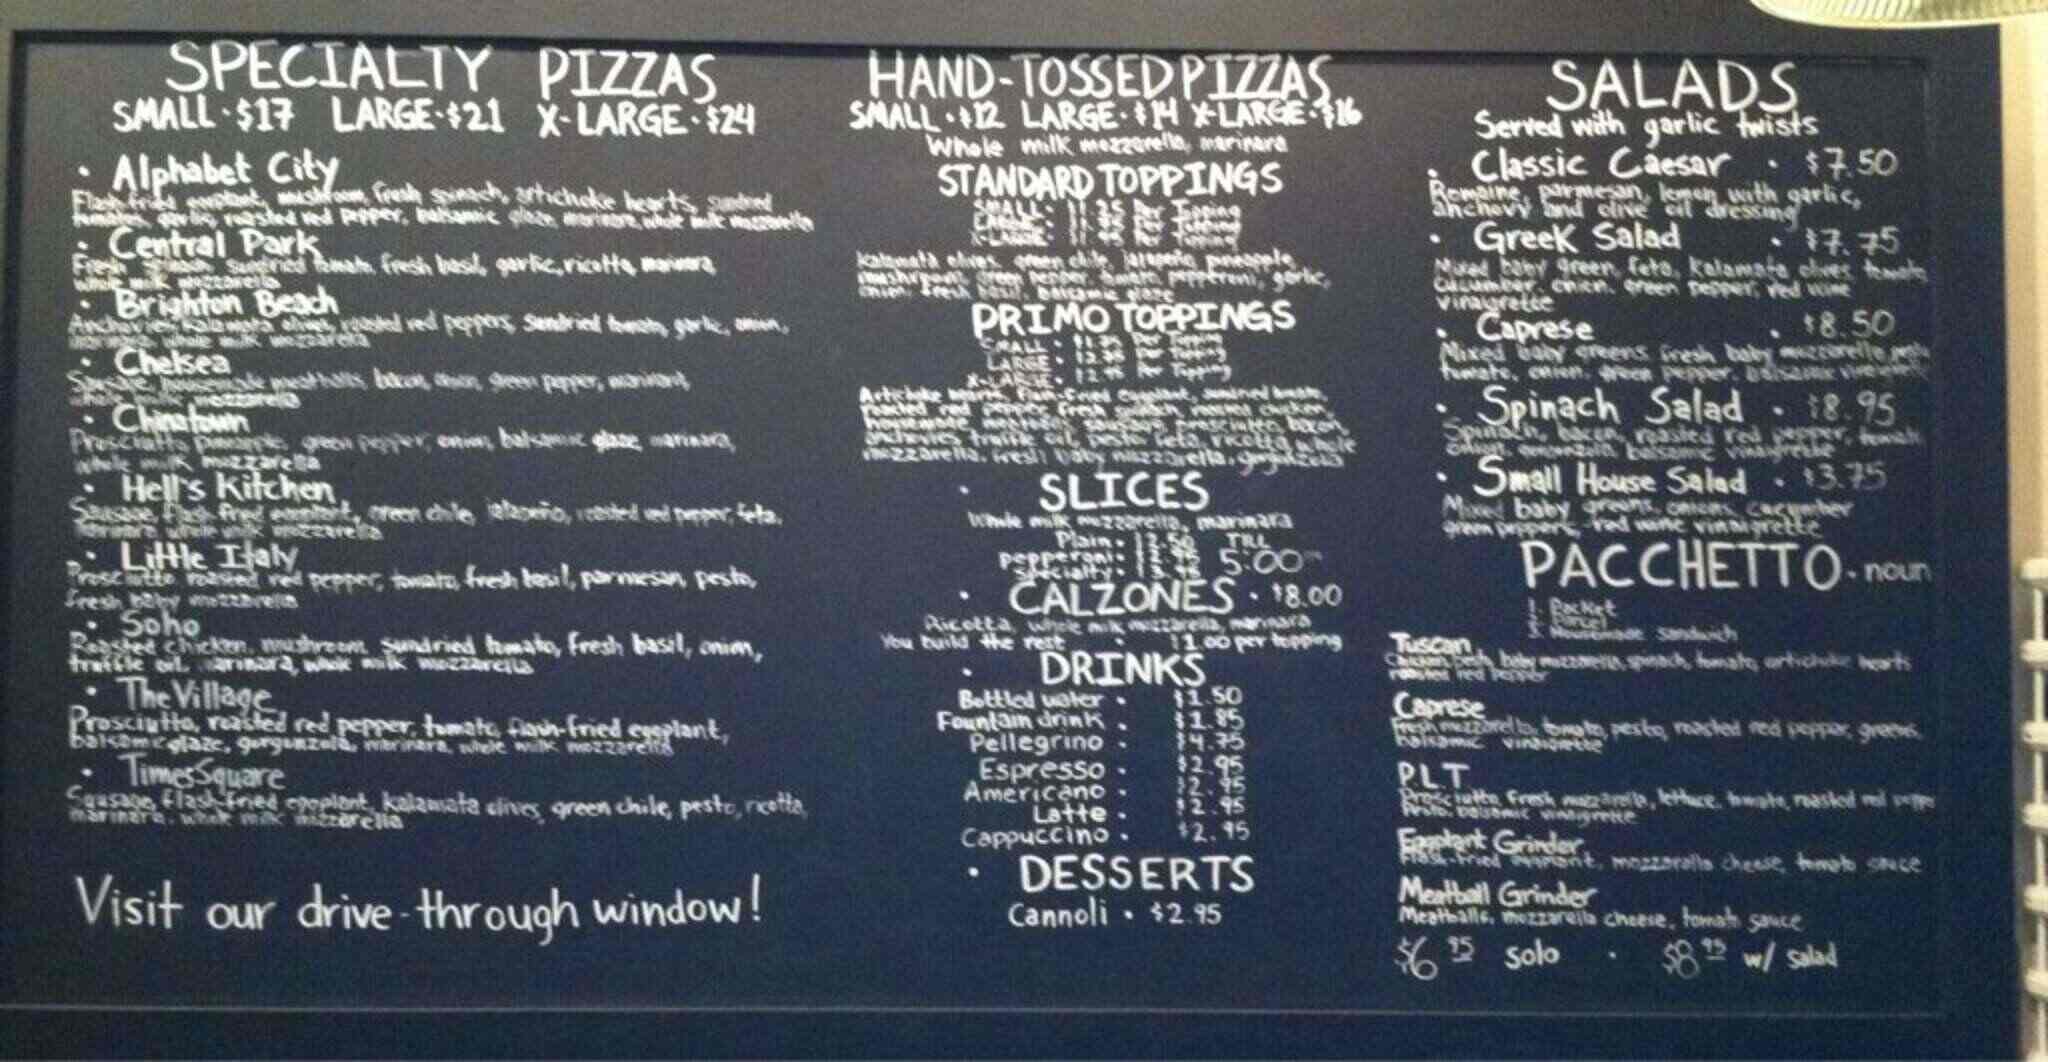 SPECIALTY PIZZAS
SMALL · $17 LARGE · $21 X-LARGE · $24
· Alphabet City
Flash-fried eggplant, mushroom, fresh spinach, artichoke hearts, sundried
tomatoes, garlic, roasted red pepper, balsamic glaze, marinara, whole milk mozzarella
· Central Park
Fresh spinach, sundried tomato, fresh basil, garlic, ricotta, marinara,
whole milk mozzarella
· Brighton Beach
Anchovies, kalamata olives, roasted red peppers, sundried tomato, garlic, onion,
marinara, whole milk mozzarella
· Chelsea
Sausage, housemade meatballs, bacon, onion, green pepper, marinara,
whole milk mozzarella
· Chinatown
Prosciutto, pineapple, green pepper, onion, balsamic glaze, marinara,
whole milk mozzarella
· Hell's Kitchen
Sausage, flash-fried eggplant, green chile, jalapeño, roasted red pepper, feta,
marinara, whole milk mozzarella
· Little Italy
Prosciutto roasted red pepper, tomato, fresh basil, parmesan, pesto,
fresh baby mozzarella
· Soho
Roasted chicken, mushroom, sundried tomato, fresh basil, onion,
truffle oil, marinara, whole milk mozzarella
· The Village
Prosciutto, roasted red pepper, tomato, flash-fried eggplant,
balsamic glaze, gorgonzola, marinara, whole milk mozzarella
· Times Square
Sausage, flash-fried eggplant, kalamata olives, green chile, pesto, ricotta,
marinara, whole milk mozzarella
Visit our drive-through window!
HAND-TOSSED PIZZAS
SMALL · $12 LARGE · $14 X-LARGE · $16
Whole milk mozzarella, marinara
STANDARD TOPPINGS
SMALL · Per Topping
LARGE · Per Topping
X-LARGE · Per Topping
Kalamata olives, green chile, jalapeño, pineapple,
mushrooms, green pepper, tomato, pepperoni, garlic,
onion, fresh basil, balsamic glaze
PRIMO TOPPINGS
SMALL · Per Topping
LARGE · Per Topping
X-LARGE · Per Topping
Artichoke hearts, flash-fried eggplant, sundried tomato,
roasted red pepper, fresh spinach, roasted chicken,
sausage, prosciutto, bacon,
anchovies, truffle oil, pesto, feta, ricotta, whole
mozzarella, fresh baby mozzarella, gorgonzola
· SLICES
Whole milk mozzarella, marinara
Plain · $2.50 TILL
pepperoni · 5:00
Specialty ·
· CALZONES · $8.00
Ricotta, whole milk mozzarella, marinara
You build the rest · $1.00 per topping
· DRINKS
Bottled water · $1.50
Fountain drink · $1.85
Pellegrino · $4.75
Espresso · $2.95
Americano · $2.95
Latte · $2.95
Cappuccino · $2.95
· DESSERTS
Cannoli · $2.95
SALADS
Served with garlic twists
· Classic Caesar · $7.50
Romaine, parmesan, lemon with garlic,
anchovy and olive oil dressing
· Greek Salad · $7.75
Mixed baby green, feta, kalamata olives, tomato,
cucumber, onion, green pepper, red wine
vinaigrette
· Caprese · $8.50
Mixed baby greens, fresh baby mozzarella, pesto
tomato, onion, green pepper, balsamic vinaigrette
· Spinach Salad · $8.95
Spinach, bacon, roasted red pepper, tomato
balsamic vinaigrette
· Small House Salad · $3.75
Mixed baby greens, onions, cucumber
green peppers, red wine vinaigrette
PACCHETTO · noun
1. Packet
2. Parcel
3. Housemade sandwich
Tuscan
Chicken, fresh baby mozzarella, spinach, tomato, artichoke hearts
roasted red pepper
Caprese
Fresh mozzarella, tomato, pesto, roasted red pepper, greens,
balsamic vinaigrette
P.L.T
Prosciutto, fresh mozzarella, lettuce, tomato, roasted red pepper
Pesto, balsamic vinaigrette
Eggplant Grinder
Flash-fried eggplant, mozzarella cheese, tomato sauce
Meatball Grinder
Meatballs, mozzarella cheese, tomato sauce
$6.95 solo · $8.95 w/ salad